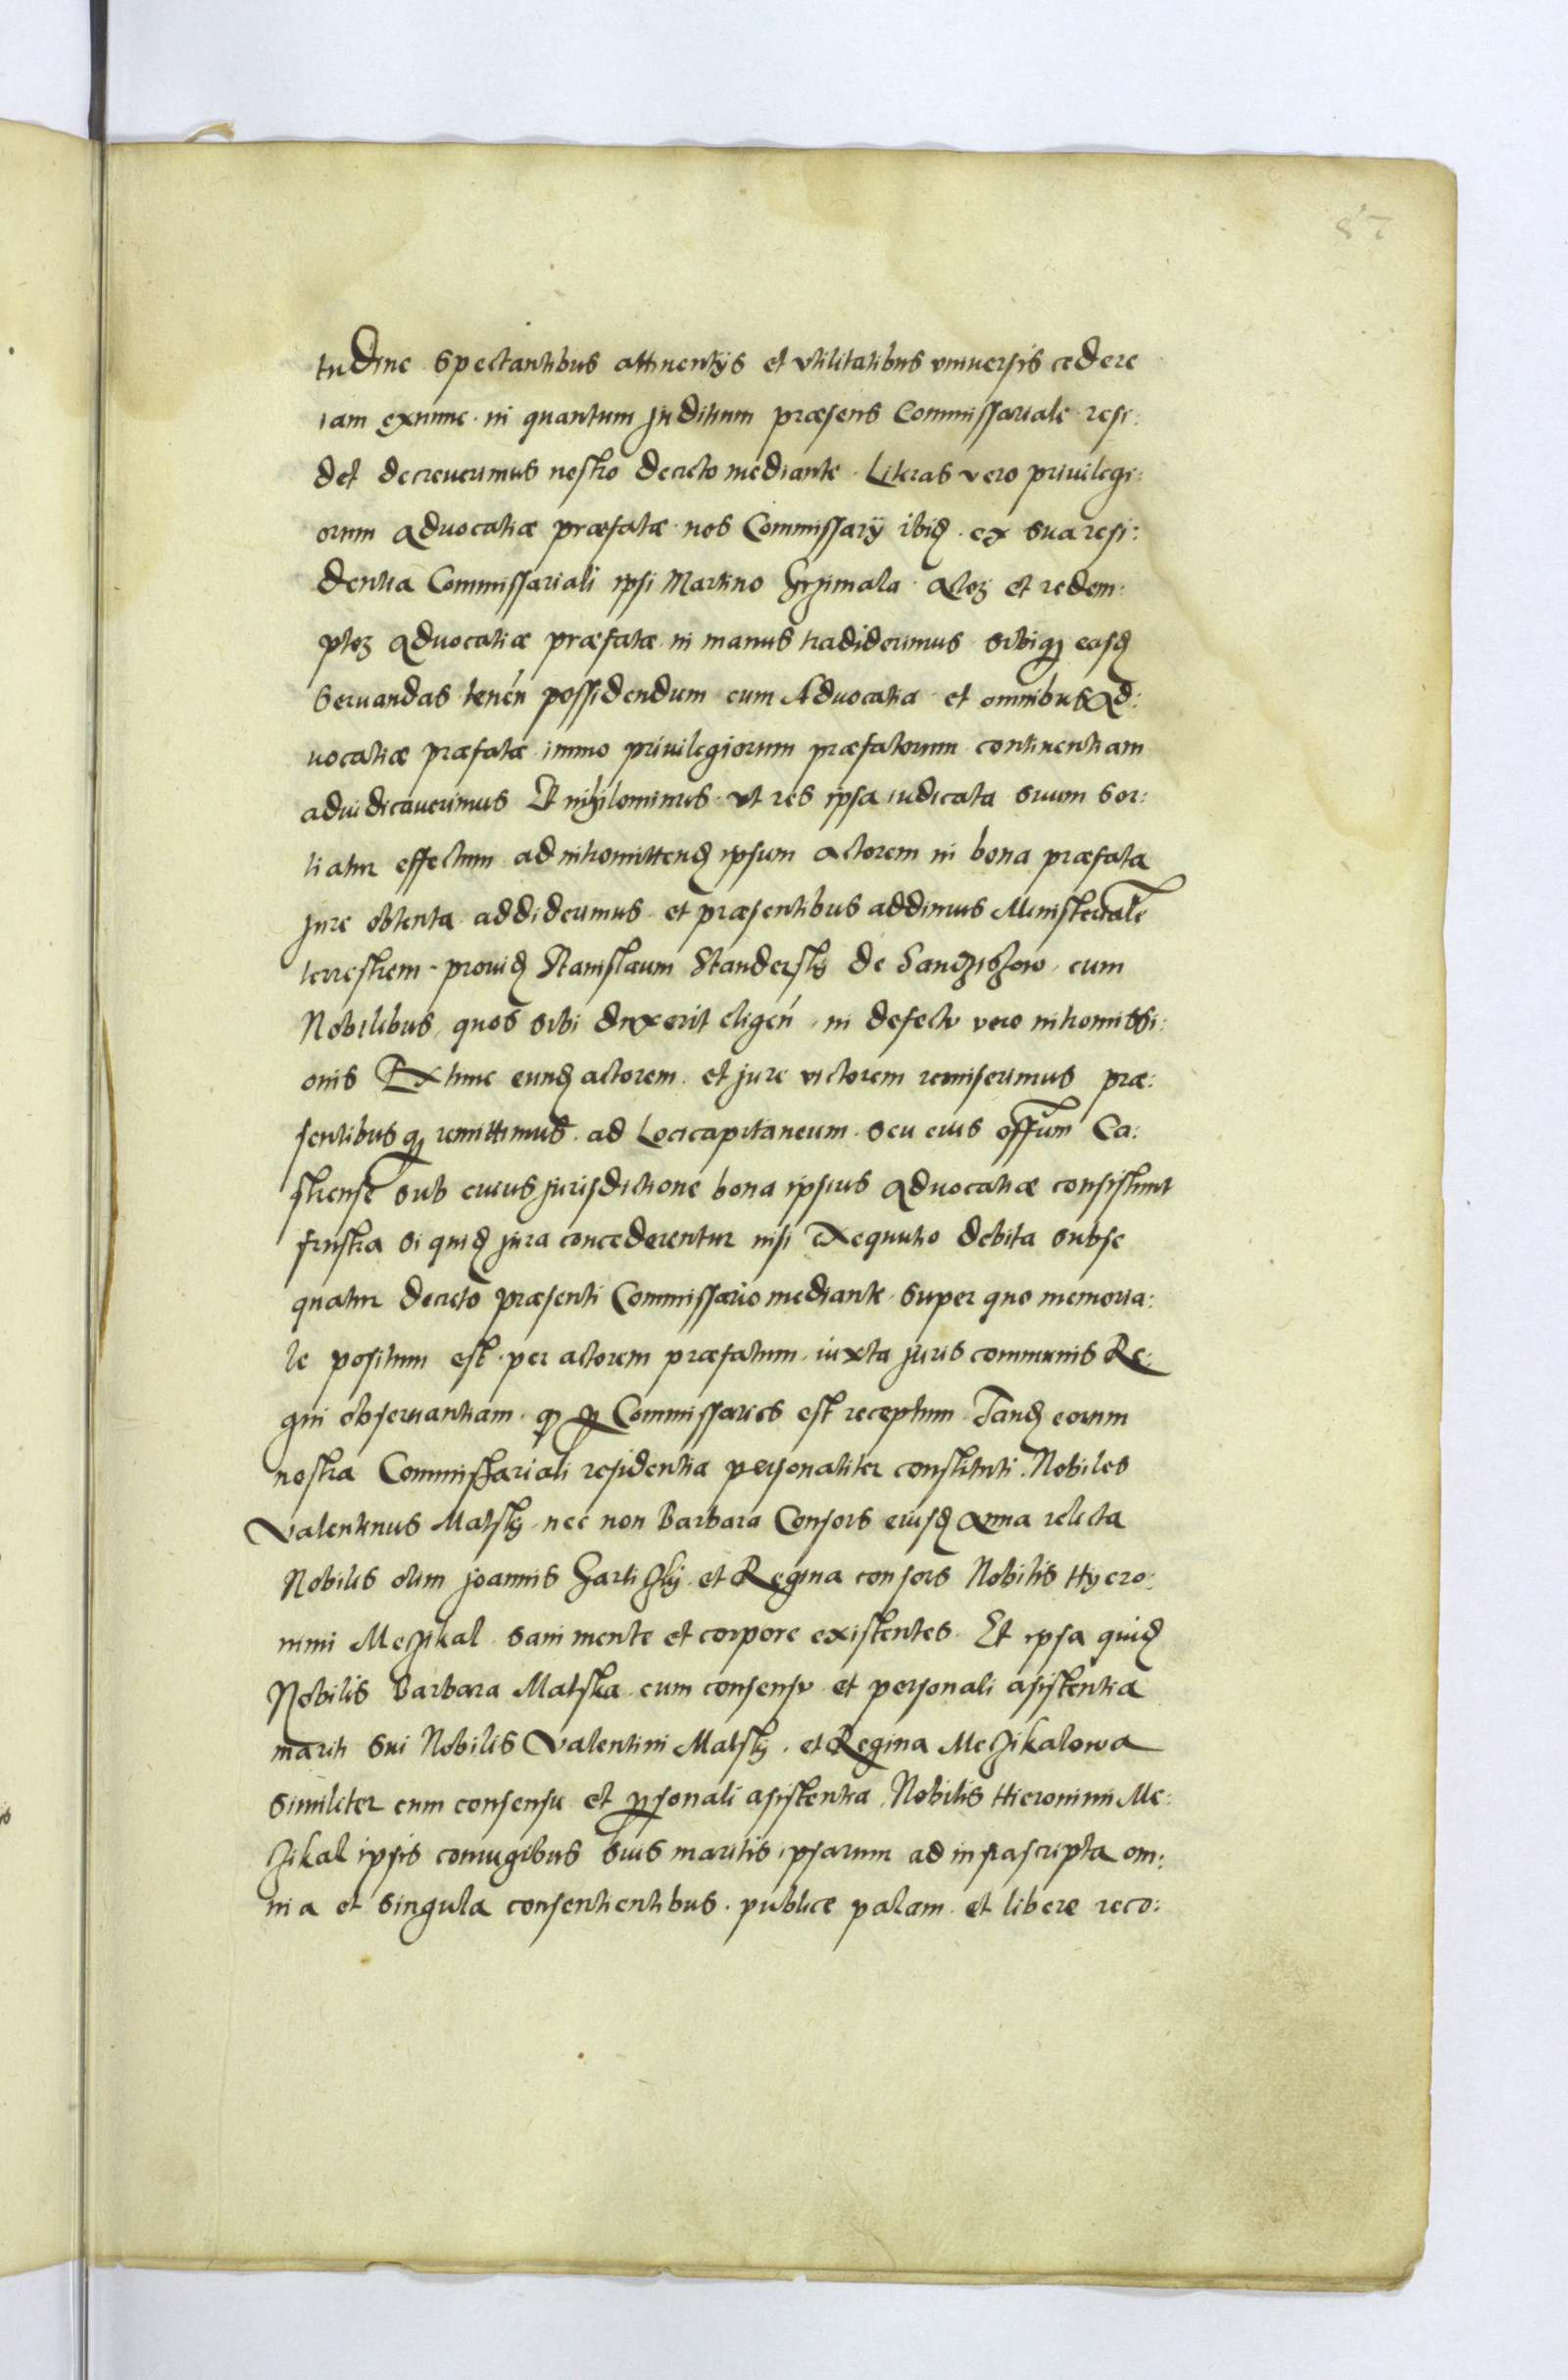 87
tudine spectantibus attinentijs et vtilitatibus vniuersis cedere
iam exnunc in quantum juditium præsens Commissariale resi:
det decreuerimus nostro decreto mediante. Literas vero priuilegi:
orum Aduocatiæ præfatæ nos Commissarÿ ibid. ex sua resi:
dentia Commissariali ipsi Martino Actoꝫ et redem:
ptoꝫ Aduocatiæ præfatæ in manus tradiderimus sibiqꝫ easd
seruandas tenen possidendum cum Aduocatia et omnibus Ad:
uocatiæ præfatæ immo priuilegiorum præfatorum continentiam
adiudicauerimus Et nihilominus vt res ipsa iudicata suum sor:
tiatur effectum ad intromittend ipsum actorem in bona præfata
jure obtenta addiderimus et præsentibus addimus Ministeriale
terrestrem prouid Stanislaum Standersky de cum
Nobilibus quos sibi duxerit eligen in defectu vero intromissi:
onis Extunc eund actorem et jure victorem remiserimus præ:
sentibusqꝫ remittimus ad Locicapitaneum seu eius offum Ca:
strense sub cuius jurisdictione bona ipsius Aduocatiæ consistunt
frustra siquid jura concederentur nisi Exequutio debita subse
quatur decreto præsenti Commissario mediante super quo memoria:
le positum est per actorem præfatum iuxta juris communis Re:
gni obseruantiam qꝫ ꝑ Commissarios est receptum Tand corum
nostra Commissariali residentia personaliter constituti Nobiles
Valentinus Matsky nec non Barbara Consors eiusd Anna relicta
Nobilis olim Joannis et Regina consors Nobilis Hyero:
nimi Mezikal sani mente et corpore existentes Et ipsa quid
Nobilis Barbara Matska cum consensu et personali asistentia
mariti sui Nobilis Valentini Matsky et Regina Mezikalowa
similiter cum consensu et ꝑsonali asistentia Nobilis Hieronimi Me:
zikal ipsis coniugibus suis maritis ipsarum ad infrascripta om:
nia et singula consentientibus publice palam et libere reco: